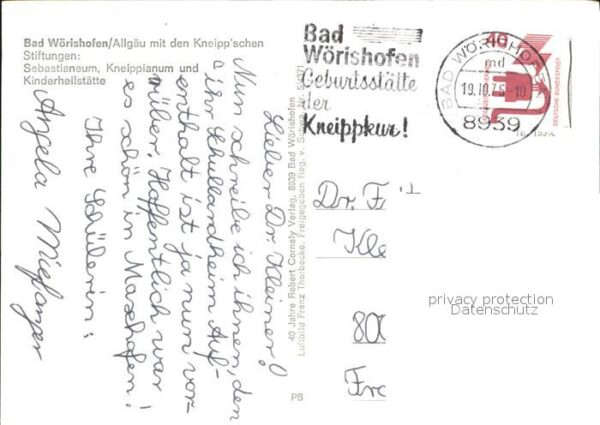 Bad Wörishofen/Allgäu mit den Kneipp'schen
Stiftungen:
Sebastianeum, Kneippianum und
Kinderheilstätte
Lieber Dr. Kleiner!
Nun schreibe ich ihnen, den
ihr Schullandheim Auf-
enthalt ist ja nun vor-
rüber. Hoffentlich war
es schön in Maschofen!
Ihre Schülerin:
Angela
40 Jahre Robert Cornely Verlag, 8939 Bad Wörishofen
Luftbild Franz Thorbecke. Freigegeben Reg. v.
PB
Bad
Wörishofen
Geburtsstätte
der
Kneippkur!
BAD WÖRISHOFEN
19.10.75-10
8939
40
DEUTSCHE BUNDESPOST
Dr. F
Kle
800
Fre
privacy protection
Datenschutz